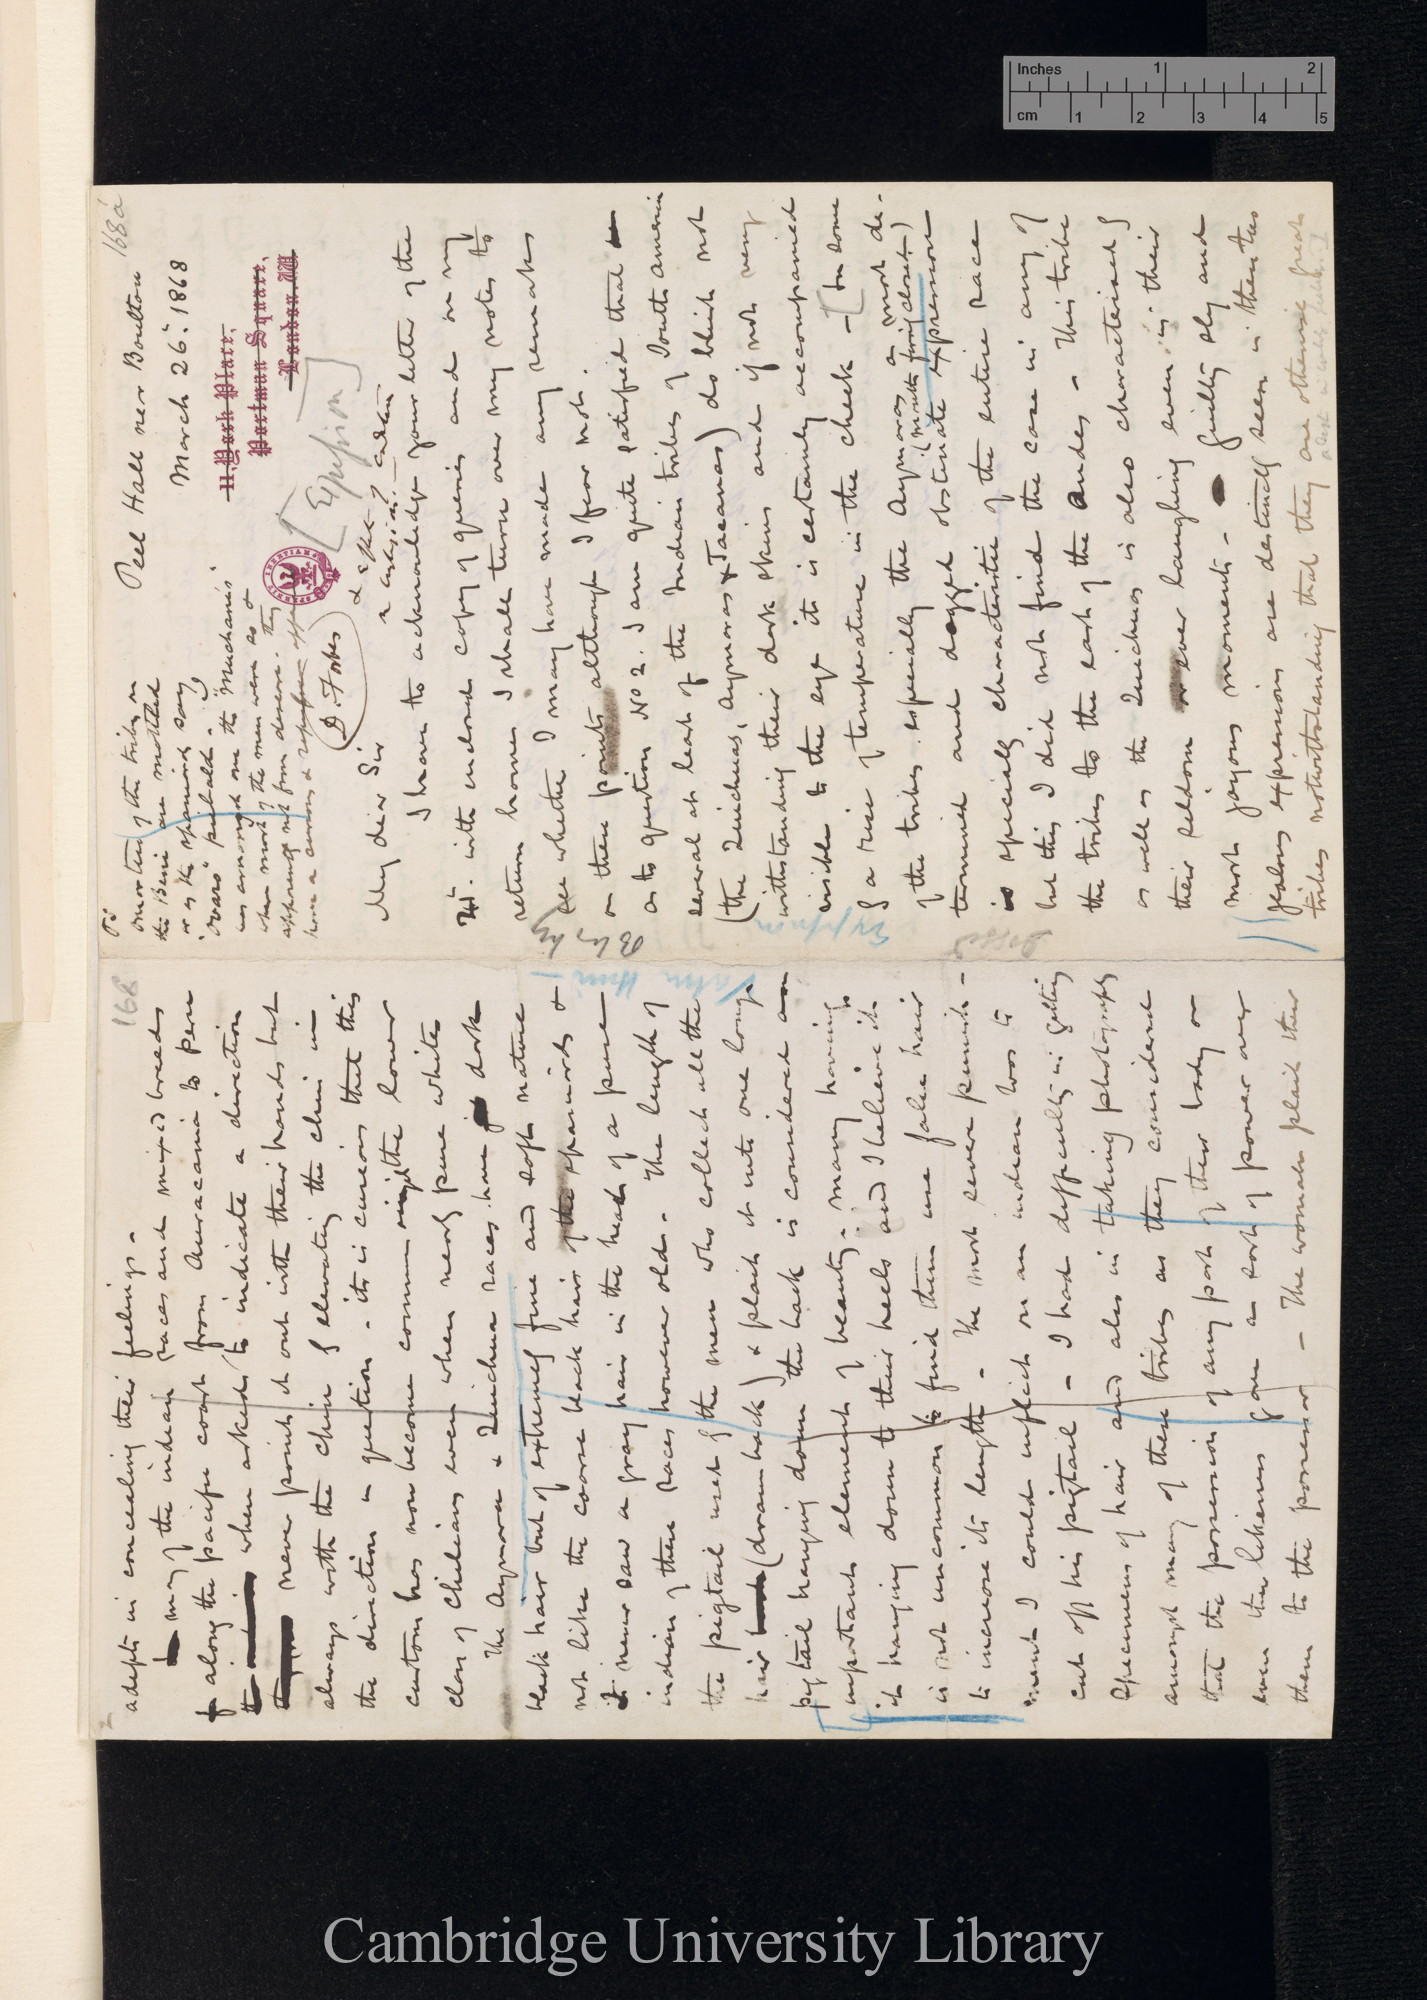 168a
Peel Hall near Boulton
March 26: 1868
11, York Place,
Portman Square,
London, W.
[Expression]
D. Forbes
My dear Sir
I have to acknowledge your letter of the
with enclosed copy of queries and on my
return home I shall turn over my notes to
see whether I may have made any remarks
on these points although I fear not.
as to question No 2. I am quite satisfied that
several at least of the Indian tribes of South America
(the Quichuas, Aymaras & Tacanas) do blush not
withstanding their dark skins and if not very
visible to the eye it is certainly accompanied
by a rise of temperature in the cheek – In some
of the tribes especially the Aymaras a most de-
(mouth firmly closed)
termined and dogged obstinate expression
is specially characteristic of the entire race
but this I did not find the case in any of
the tribes to the east of the Andes – This tribe
as well as the Quichuas is also characterised by
their seldom or ever laughing even in their
most joyous moments – Guilty sly and
jealous expressions are distinctly seen in these two
tribes notwithstanding that they are otherwise great
PS
one or two of the tribes on
the Beni are mottled
or as the Spaniards say
"overo" piebald.
168
2
adepts in concealing their feelings –
many of the indian races and mixed breeds
along the pacific coast from Auracania to Peru
when asked to indicate a direction
never point it out with their hands but
always with the chin by elevating the chin in
the direction in question – it is curious that this
custom has now become common amongst the lower
class of Chilians even when nearly pure white
The Aymara & Quichua races have dark
black hair but of extremely fine and soft nature
not like the coarse black hair of the Spaniards &
I never saw a gray hair in the head of a pure
indian of these races however old – The length of
the pigtail used by the men who collect all the
hair (drawn back) & plait it into one long
pigtail hanging down the back is considered an
important element of beauty – many having
it hanging down to their heels and I believe it
is not uncommon to find them use false hair
to increase its length – The most severe punish-
ment I could inflict on an indian was to
cut off his pigtail – I had difficulty in getting
specimens of hair and also in taking photographs
amongst many of these tribes as they considered
that the possession of any part of their body or
even their likeness gave a sort of power over
them to the possessor – The women plait their
Cambridge University Library
Inches 1 2
cm 1 2 3 4 5